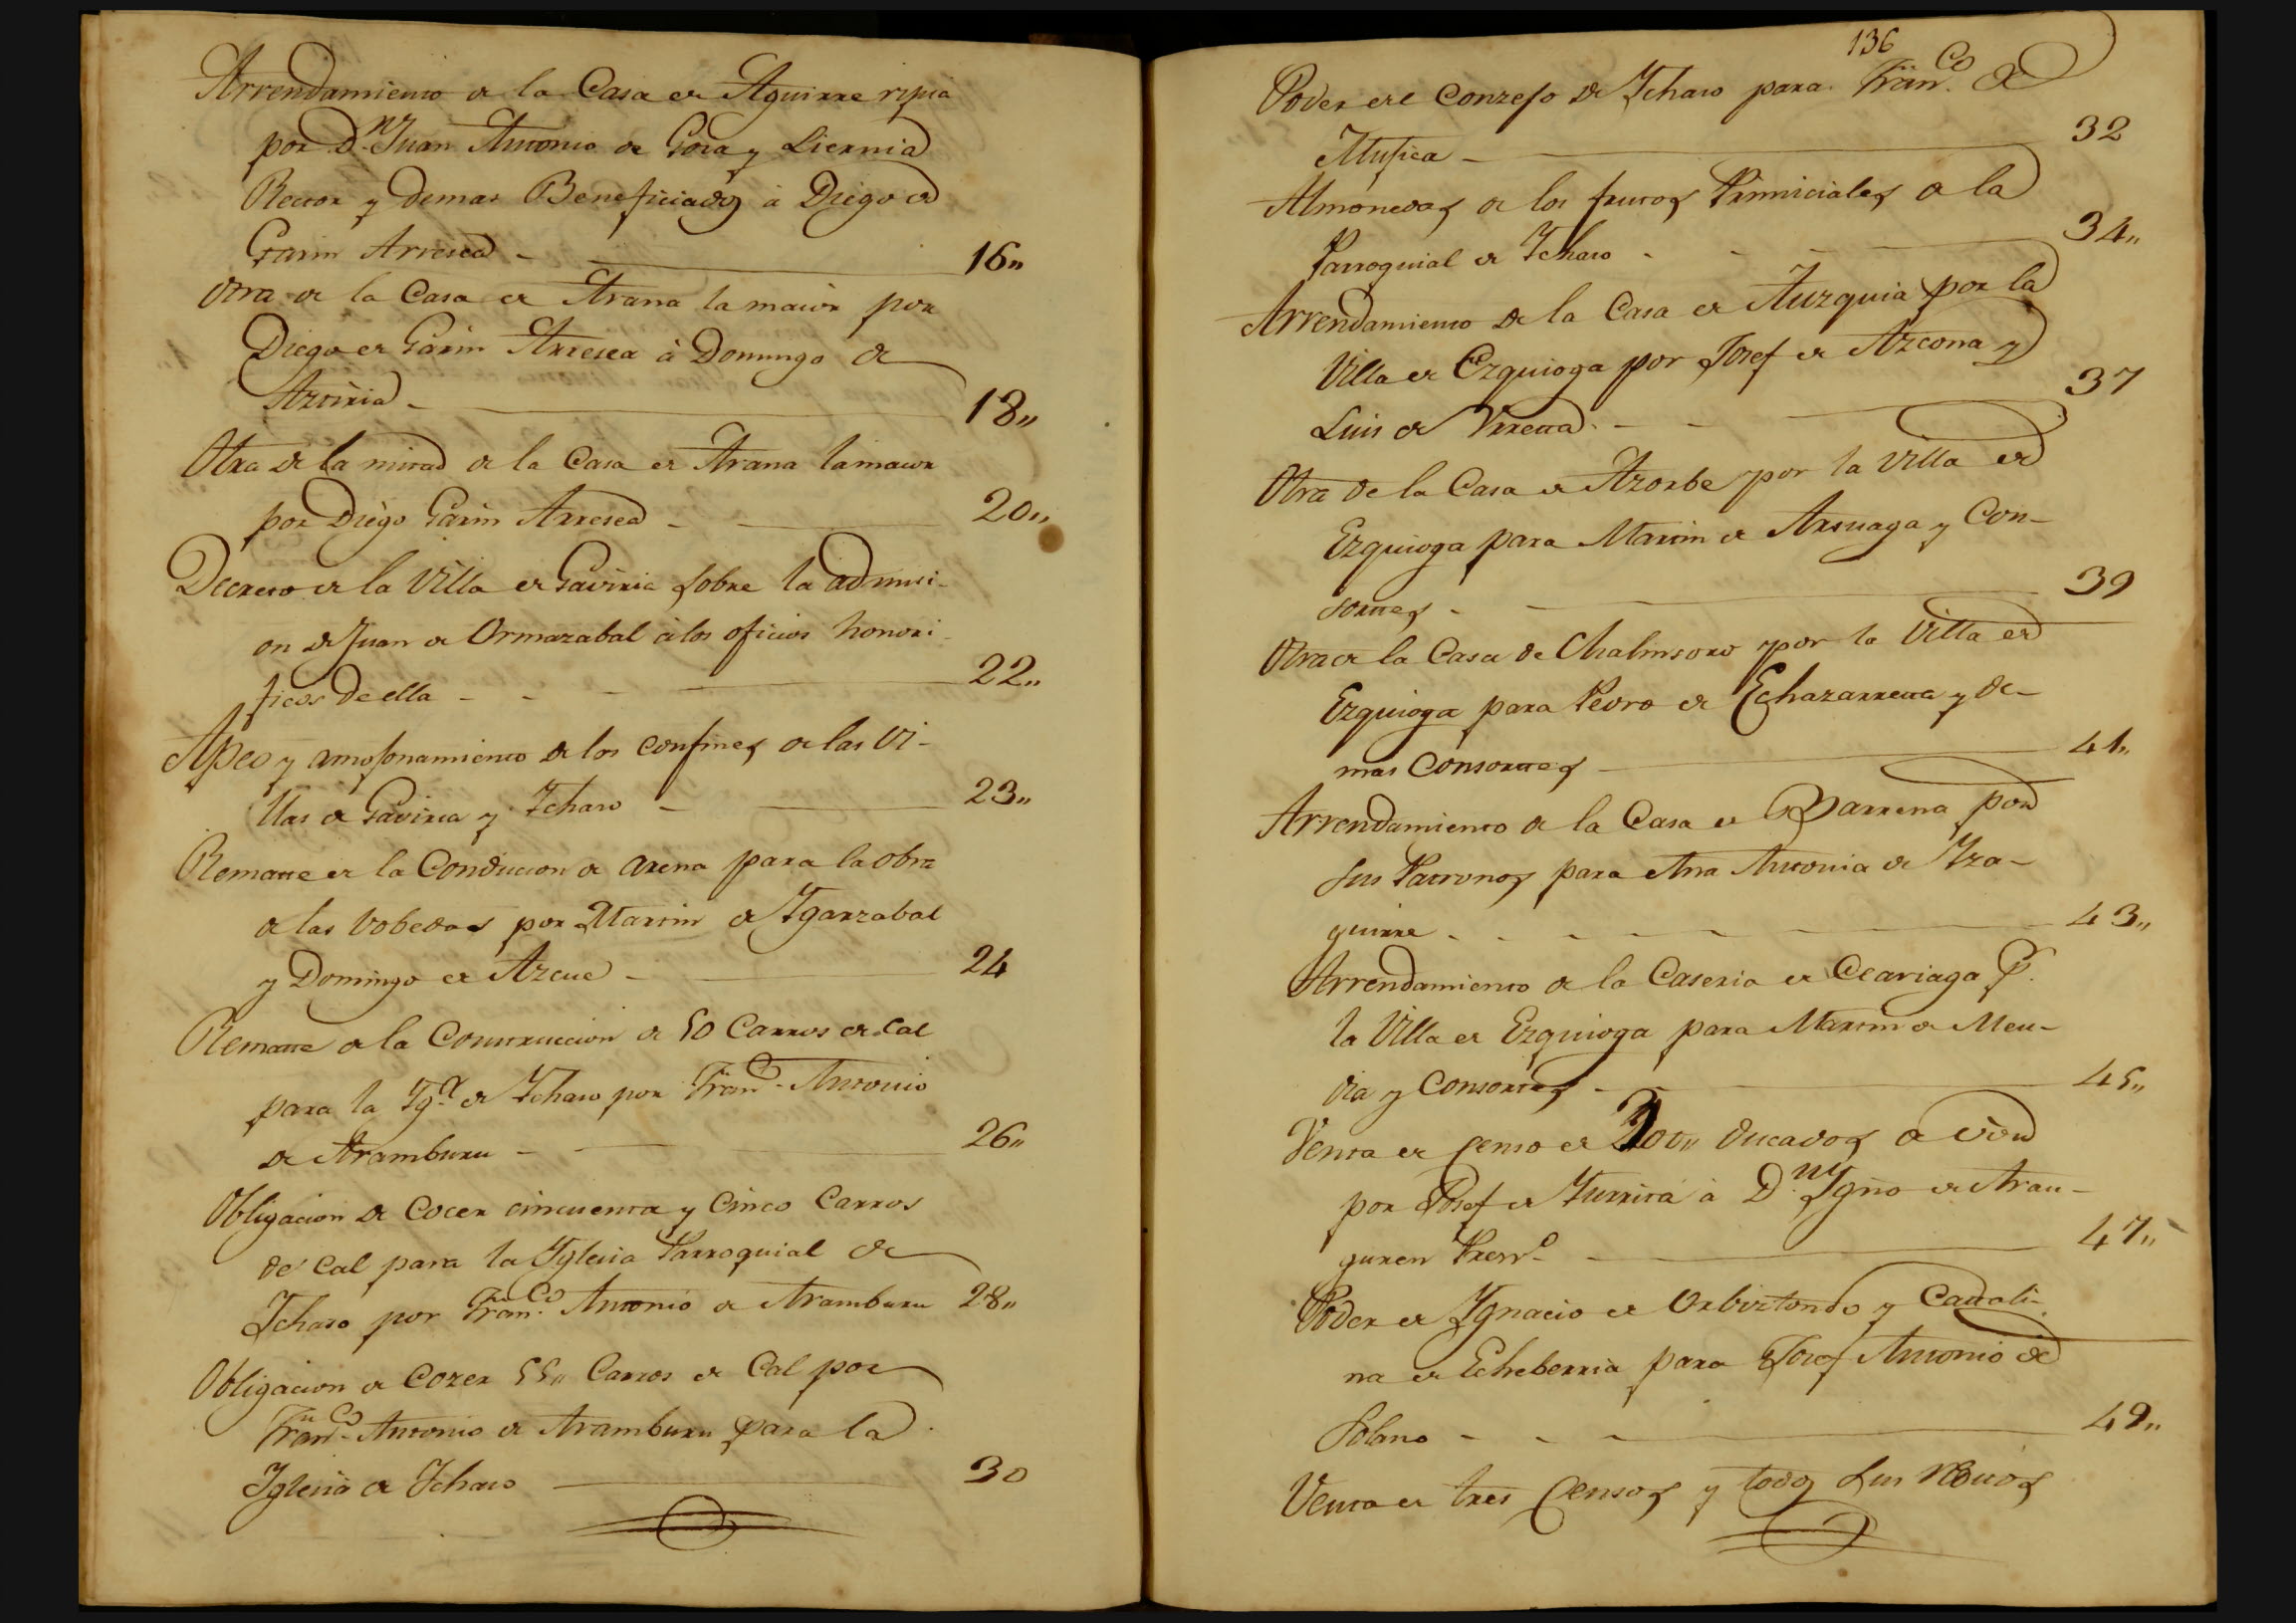 Arrendamiento de la Casa de Aguirre
por Dn Juan Antonio de Goia y Liernia
Rector y demas Beneficiados à Diego de
Garin Arresea - 16"
Otra de la Casa de Arana la maior por
Diego de Garin Arresea à Domingo de
Arziria - 18"
Otra de la mitad de la Casa de Arana la maior
por Diego Garin Arresea - 20"
Decreto de la Villa de Gaviria sobre la admisi-
on de Juan de Ormazabal à los oficios honori-
ficos de ella - 22"
Apeo y amojonamiento de los confines de las Vi-
llas de Gaviria y Ichaso - 23"
Remate de la Conducion de arena para la obra
de las bobedas por Martin de Ygarzabal
y Domingo de Azcue - 24
Remate de la Construccion de 50 Carros de Cal
para la Ygª de Ychaso por Franco Antonio
de Aramburu - 26"
Obligacion de Cocer cincuenta y Cinco Carros
de Cal para la Yglesia Parroquial de
Ichaso por Franco Antonio de Aramburu 28"
Obligacion de Cozer 55" Carros de Cal por
Franco Antonio de Aramburu para la
Yglesia de Ychaso 30
136
Poder del Conzejo de Ychaso para Franco de
Mujica - 32
Almonedas de los frutos Primiciales de la
Parroquial de Ychaso - 34"
Arrendamiento de la Casa de Auzquia por la
Villa de Ezquioga por Josef de Azcona y
Luis de Urreta - 37
Otra de la Casa de Azorbe por la Villa de
Ezquioga para Martin de Arsuaga y Con-
sortes - 39
Otra de la Casa de Chalinsoro por la Villa de
Ezquioga para Pedro de Echazarreta y de-
mas Consortes 41"
Arrendamiento de la Casa de Barrena por
sus Patronos para Ana Antonia de Yza-
guirre - 43"
Arrendamiento de la Caseria de Olariaga P.
la Villa de Ezquioga para Martin de Men-
dia y Consortes - 45"
Venta de censo de 300" ducados de
por Josef de Yurrita à Dn Ygno de Aran-
guren Presvo 47"
Poder de Ygnacio de Orbiztondo y Catali-
na de Echeberria para Josef Antonio de
Solano - 49"
Venta de tres Censos y todos sus reditos